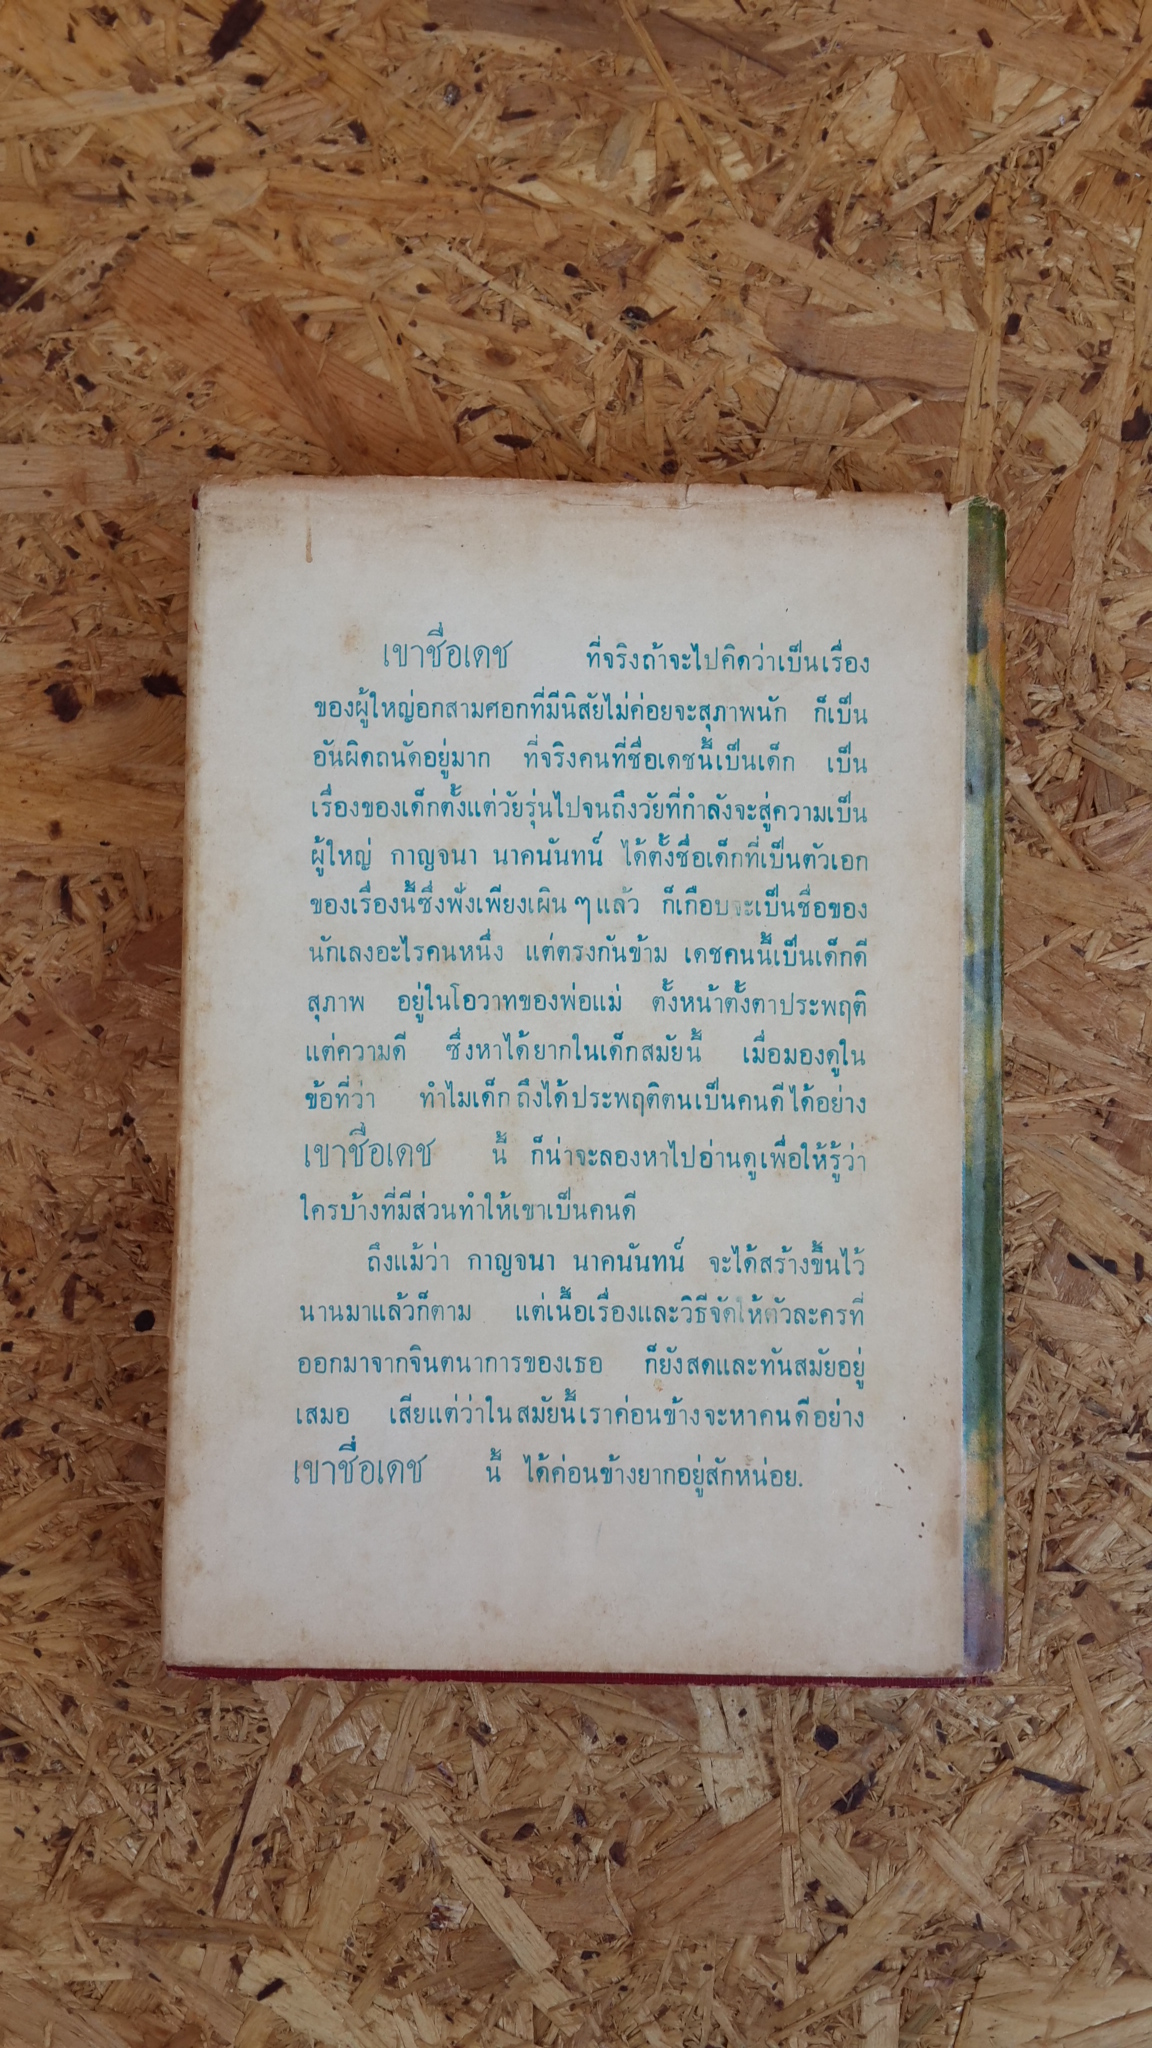 เขาชื่อเดช ที่จริงถ้าจะไปคิดว่าเป็นเรื่อง
ของผู้ใหญ่อกสามศอกที่มีนิสัยไม่ค่อยจะสุภาพนัก ก็เป็น
อันผิดถนัดอยู่มาก ที่จริงคนที่ชื่อเดชนี้เป็นเด็ก เป็น
เรื่องของเด็กตั้งแต่วัยรุ่นไปจนถึงวัยที่กำลังจะสู่ความเป็น
ผู้ใหญ่ กาญจนา นาคนันทน์ ได้ตั้งชื่อเด็กที่เป็นตัวเอก
ของเรื่องนี้ซึ่งฟังเพียงเผิน ๆ แล้ว ก็เกือบจะเป็นชื่อของ
นักเลงอะไรคนหนึ่ง แต่ตรงกันข้าม เดชคนนี้เป็นเด็กดี
สุภาพ อยู่ในโอวาทของพ่อแม่ ตั้งหน้าตั้งตาประพฤติ
แต่ความดี ซึ่งหาได้ยากในเด็กสมัยนี้ เมื่อมองดูใน
ข้อที่ว่า ทำไมเด็กถึงได้ประพฤติตนเป็นคนดีได้อย่าง
เขาชื่อเดช นี้ ก็น่าจะลองหาไปอ่านดูเพื่อให้รู้ว่า
ใครบ้างที่มีส่วนทำให้เขาเป็นคนดี
ถึงแม้ว่า กาญจนา นาคนันทน์ จะได้สร้างขึ้นไว้
นานมาแล้วก็ตาม แต่เนื้อเรื่องและวิธีจัดให้ตัวละครที่
ออกมาจากจินตนาการของเธอ ก็ยังสดและทันสมัยอยู่
เสมอ เสียแต่ว่าในสมัยนี้เราค่อนข้างจะหาคนดีอย่าง
เขาชื่อเดช นี้ ได้ค่อนข้างยากอยู่สักหน่อย.